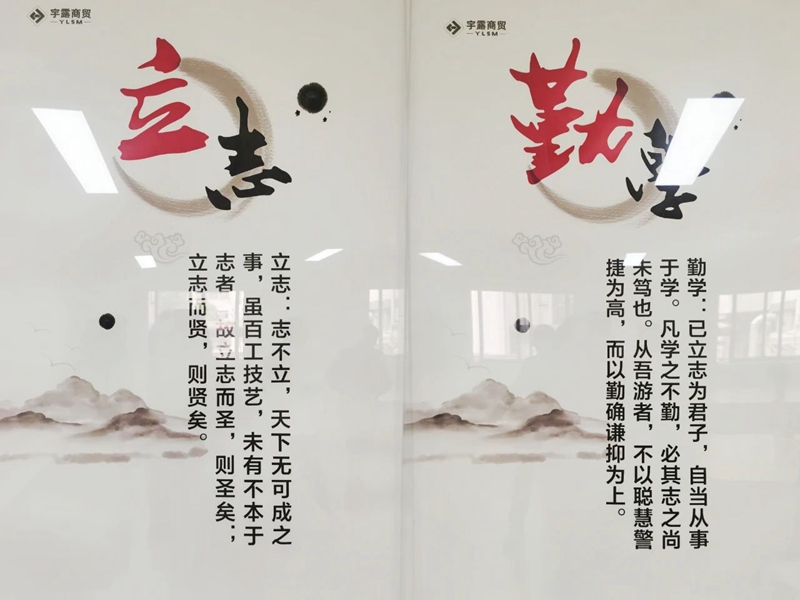 宇露商贸
YLSM
立志
立志：志不立，天下无可成之
事，虽百工技艺，未有不本于
志者 故立志而圣，则圣矣；
立志而贤，则贤矣。
宇露商贸
YLSM
勤学
勤学：已立志为君子，自当从事
于学。凡学之不勤，必其志之尚
未笃也。从吾游者，不以聪慧警
捷为高，而以勤确谦抑为上。